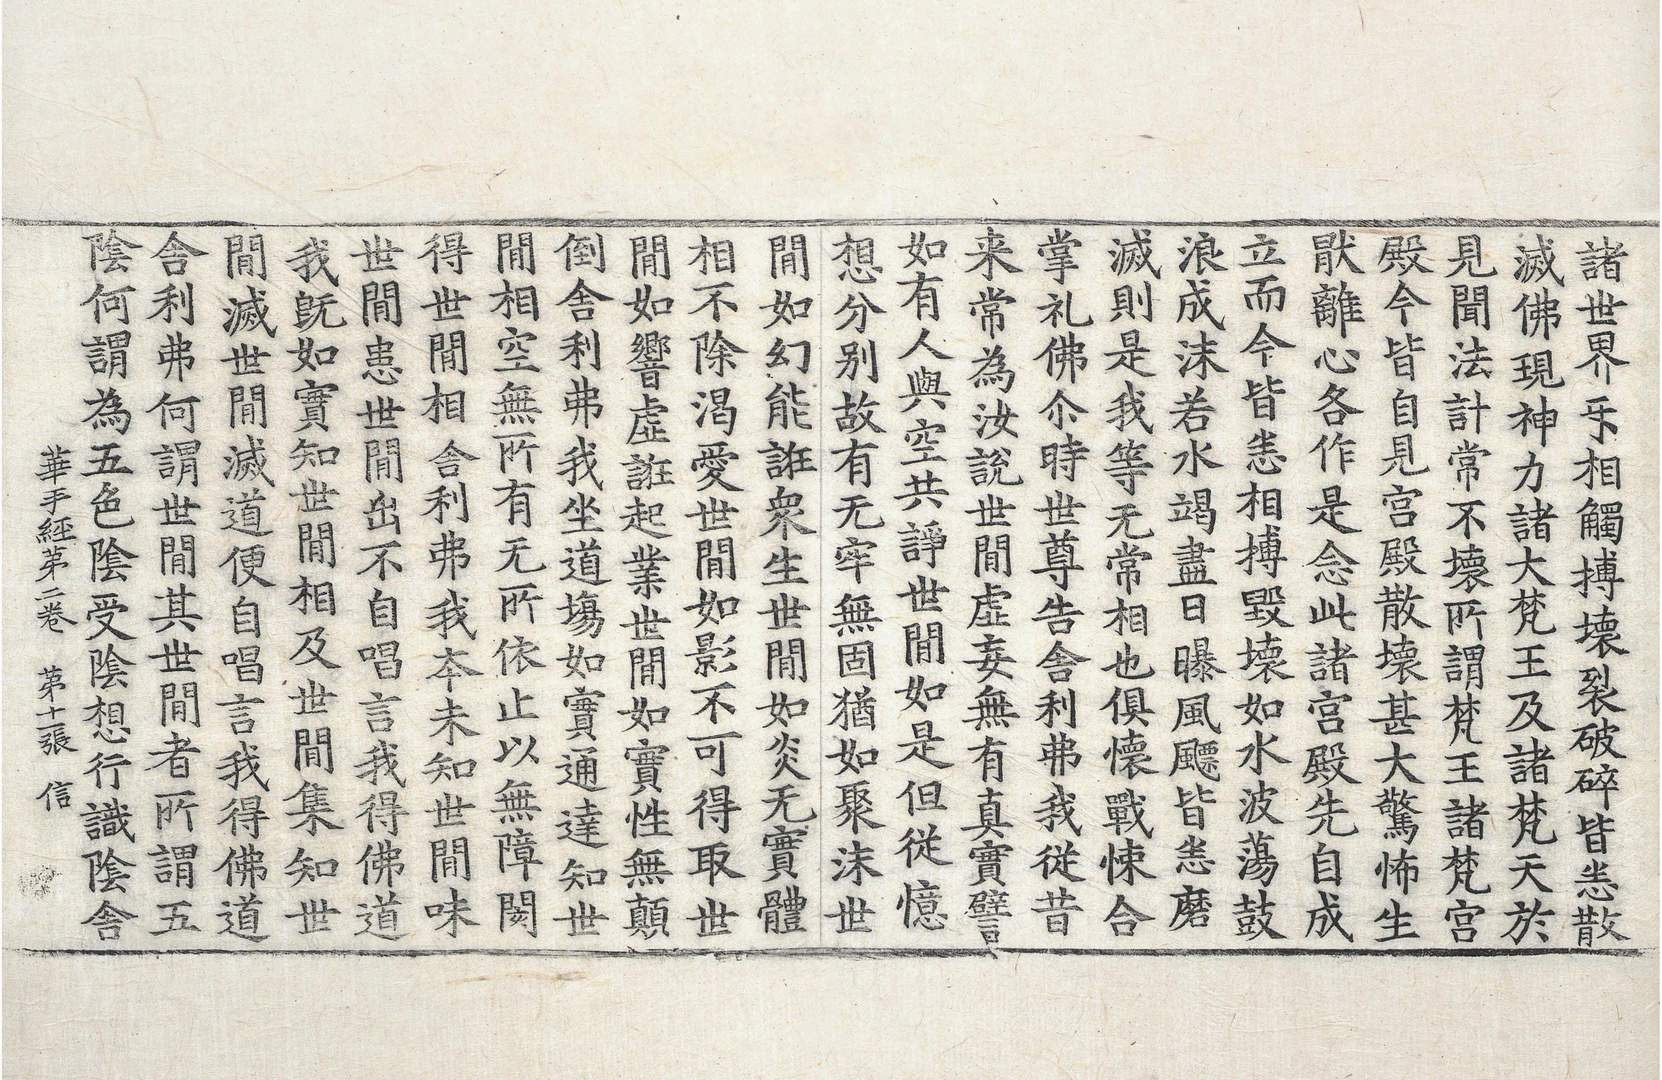 諸世界㸦相觸搏壞裂破碎皆悉散
滅佛現神力諸大梵王及諸梵天於
見聞法計常不壞所謂梵王諸梵宮
殿今皆自見宮殿散壞甚大驚怖生
猒離心各作是念此諸宮殿先自成
立而今皆悉相搏毀壞如水波蕩鼓
浪成沫若水竭盡日曝風飃皆悉磨
滅則是我等无常相也俱懷戰悚合
掌礼佛尒時世尊告舍利弗我從昔
来常為汝說世間虛妄無有真實譬
如有人與空共諍世間如是但從憶
想分別故有无牢無固猶如聚沫世
間如幻能誑衆生世間如炎无實體
相不除渴愛世間如影不可得取世
間如響虛誑起業世間如實性無顛
倒舍利弗我坐道場如實通達知世
間相空無所有无所依止以無障閡
得世間相舍利弗我夲未知世間味
世間患世間出不自唱言我得佛道
我旣如實知世間相及世間集知世
間滅世間滅道便自唱言我得佛道
舍利弗何謂世間其世間者所謂五
陰何謂為五色陰受陰想行識陰舍
華手經第二卷 第十一張 信